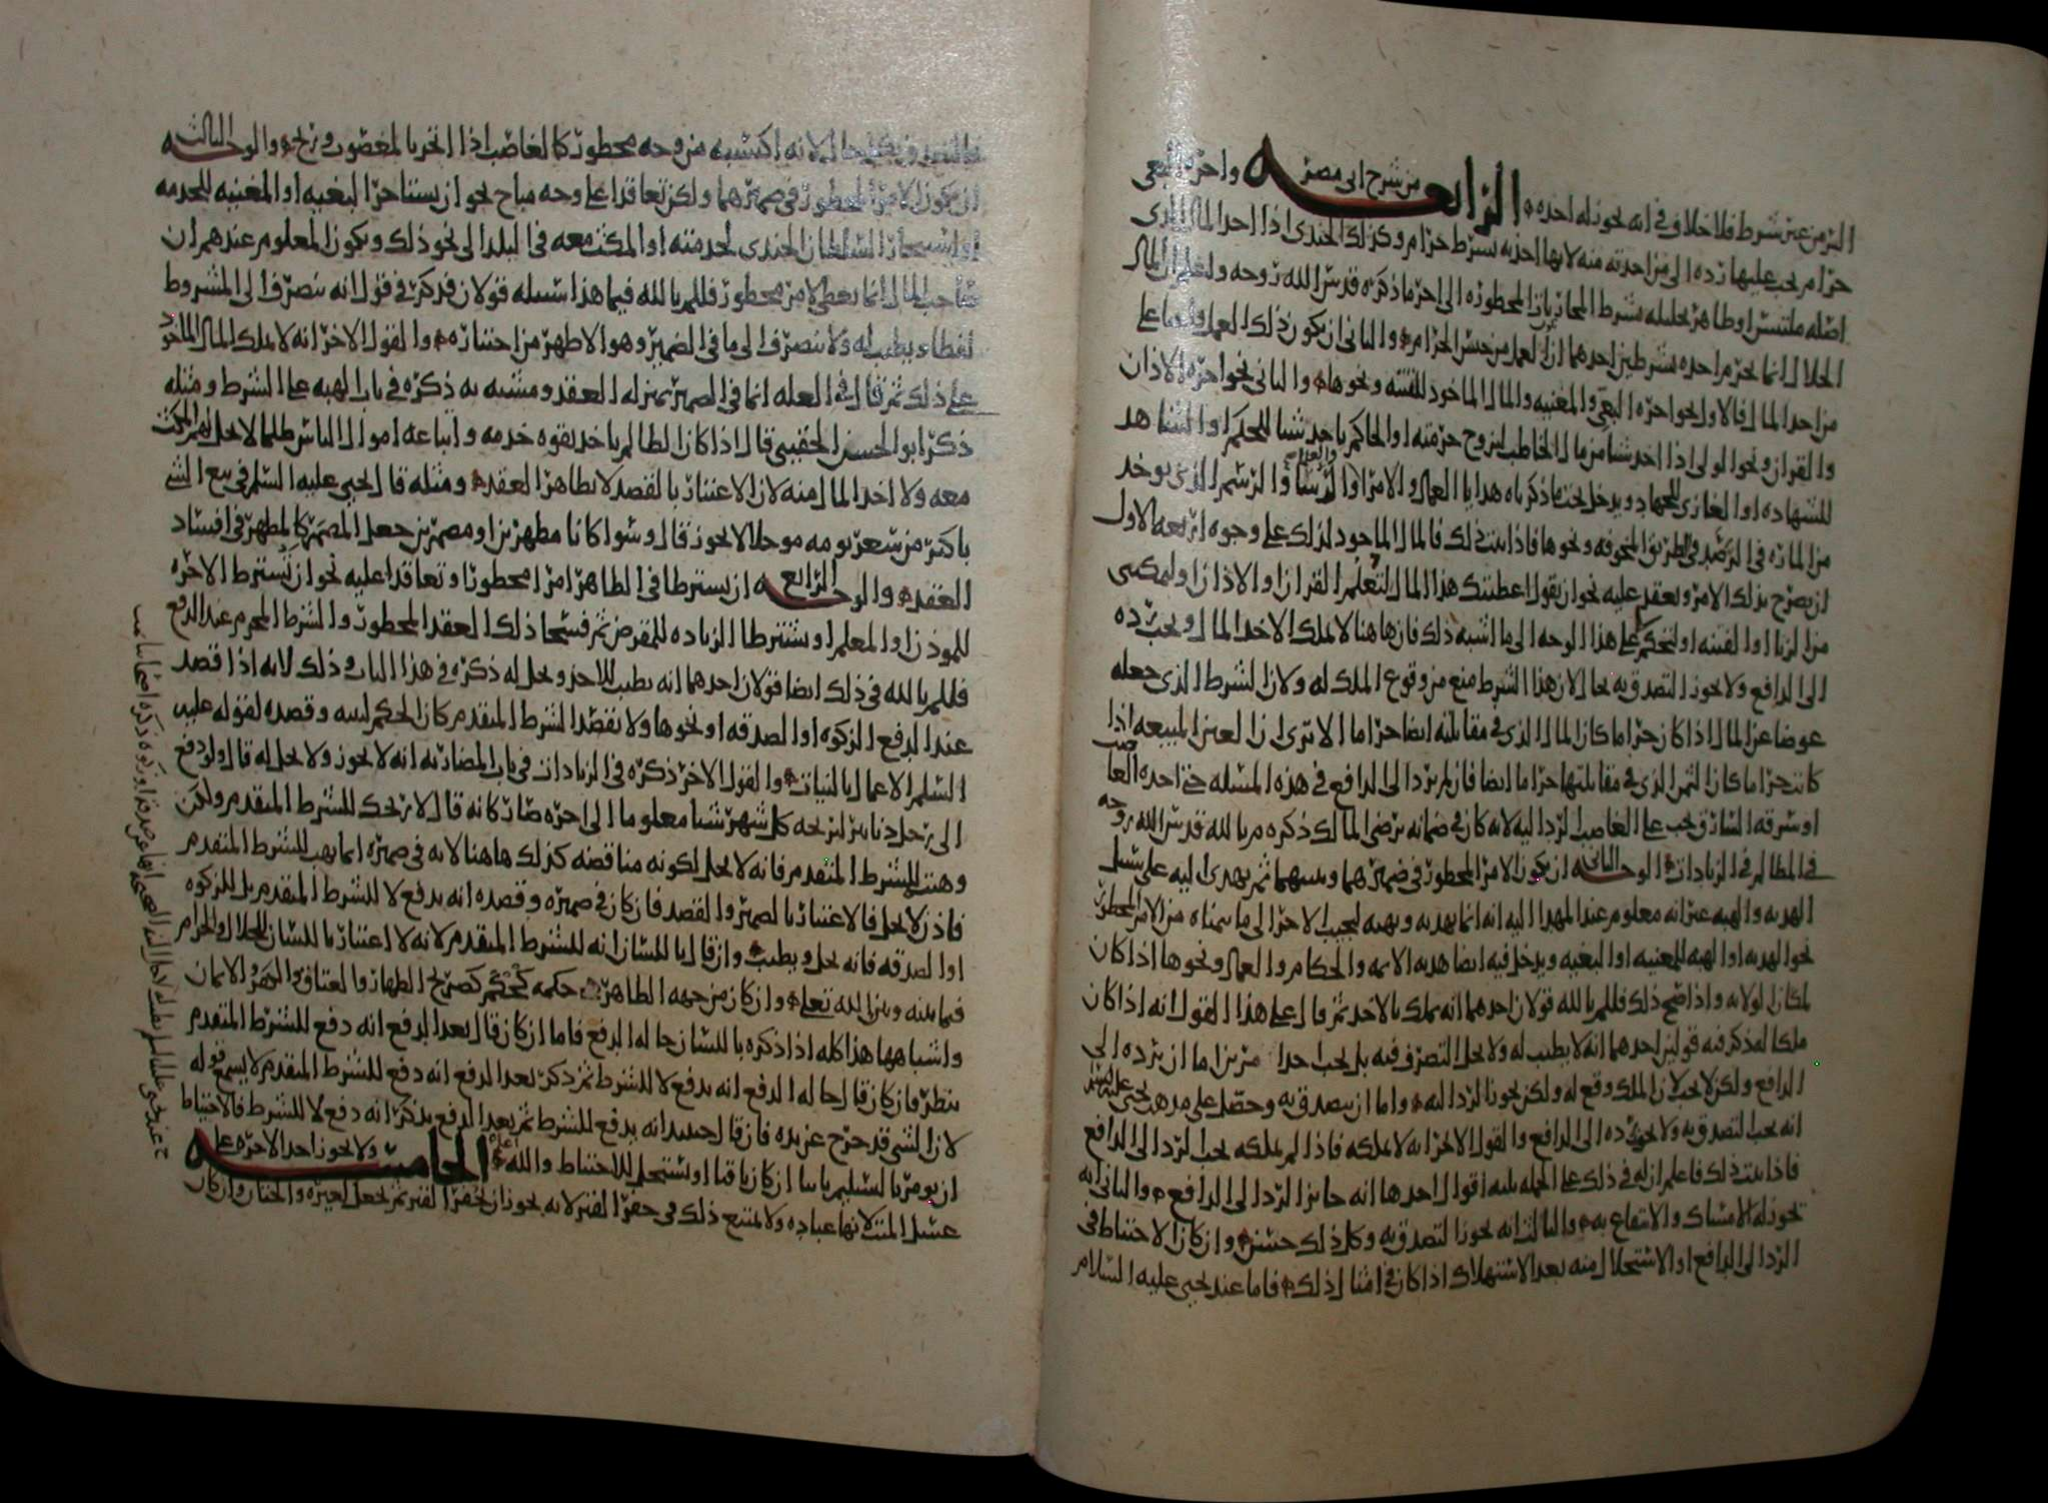 البر من غير شرط فلا خلاف في انه يجوز له اخذه الرابعه من شرح ابي مضر واجره البغي
حرام يجب عليها رده الى من اخذته منه لانها اخذته بشرط حرام وكذلك الجندي اذا اخذ المال الذي
اصله ملتبس او ظاهر تحليله بشرط المحاربه المحظوره الى اخر ما ذكره قدس الله روحه واعلم ان المال
الحلال انما يحرم اخذه بشرطين احدهما ان العمل من جنس الحرام والثاني ان يكون ذلك العمل
من اخذ المال فالاول نحو اجره البغي والمغنيه والمال الماخوذ للفتنه ونحوها والثاني نحو اجره الاذان
والقران ونحو الولي اذا اخذ شيا من مال الخاطب ليزوج حرمته او الحاكم ياخذ شيا للحكم او الشاهد
للشهاده او الغازي للجهاد ويدخل تحت ما ذكرناه هدايا العمال والامرا والرشا والرسم الذي يوخذ
من الماره في الطريق المخوفه ونحوها فاذا ثبت ذلك فالمال الماخوذ لذلك على وجوه اربعه الاول
ان يصرح بذلك الامر ويعقد عليه نحو ان يقول اعطيتك هذا المال لتعلم القران او الاذان او لتمكني
من الزنا او الفتنه او لتحكم على هذا الوجه الى ما اشبه ذلك فان هاهنا لا يملك الاخذ المال ويجب رده
الى الدافع ولا يجوز التصدق به بحال لان هذا الشرط منع من وقوع الملك له ولان الشرط الذي جعله
عوضا عن المال اذا كان حراما كان المال الذي في مقابلته ايضا حراما الا ترى ان العين المبيعه اذا
كانت حراما كان الثمن الذي في مقابلتها حراما ايضا فان لم يرد الى الدافع في هذه المسله حتى اخذه الغاصب
او سرقه السارق يجب على الغاصب الرد اليه لانه كان في ضمانه برضى المالك ذكره م بالله قدس الله روحه
في المظالم في الزيادات الوجه الثاني ان يكون الامر المحظور في ضميرهما وبينهما ثم يهدى اليه على سبيل
الهديه والهبه غير انه معلوم عند المهدا اليه انه انما يهديه ويهبه ليجيب الاخر الى ما يتمناه من الامر المحظور
نحو الهديه او الهبه للمغنيه او البغيه ويدخل فيه ايضا هديه الايمه والحكام والعمال ونحوها اذا كان
لمكان الولايه واذا صح ذلك فللم بالله قولان احدهما انه يملك بالاخذ ثم قال على هذا القول انه اذا كان
ملكا له ذكر فيه قولين احدهما انه لا يطيب له ولا يحل التصرف فيه بل يجب احد امرين اما ان يرده الى
الدافع ولكن لا يجب لان الملك وقع له ولكن يجوز الرد اليه واما ان يتصدق به وحصل على مذهب يحيى عليه السلام
انه يجب التصدق به ولا يجوز رده الى الدافع والقول الاخر انه لا يملكه فاذا لم يملكه يجب الرد الى الدافع
فاذا ثبت ذلك فاعلم ان له في ذلك على الجمله ثلثه اقوال احدها انه جائز الرد الى الدافع والثاني انه
يجوز له الامساك والانتفاع به والثالث انه يجوز التصدق به وكل ذلك حسن وان كان الاحتياط في
الرد الى الدافع او الاستحلال منه بعد الاستهلاك اذا كان في امثال ذلك فاما عند يحيى عليه السلام
لانه اكتسبه من وجه محظور كالغاصب اذا اتجر بالمغصوب وربح والوجه الثالث
ان يكون الامر المحظور في ضميرهما ولكن تعاقدا على وجه مباح نحو ان يستاجر البغيه او المغنيه للخدمه
او استيجار السلطان الجندي لخدمته او المكث معه في البلد الى نحو ذلك ويكون المعلوم عندهم ان
صاحب المال انما يعطي لامر محظور فللم بالله فيما هذا سبيله قولان فذكر في قول انه يتصرف الى المشروط
لفظا ويطيب له ولا يتصرف الى ما في الضمير وهو الاظهر من اختياره والقول الاخر انه لا يملك المال الماخوذ
على ذلك ثم قال في العله انما في الضمير بمنزله العقد ومشبه به ذكره في باب الهبه على الشرط ومثله
ذكر ابو الحسن الحقيني قال اذا كان الظالم ياخذ بقوه خدمه واتباعه اموال الناس ظلما لا يحل لهم المكث
معه ولا اخذ المال منه لان الاعتبار بالقصد لا بظاهر العقد ومثله قال يحيى عليه السلم في بيع الشي
باكثر من سعر يومه موجلا لا يجوز قال وسوا كانا مظهرين او مضمرين جعل المضمر كالمظهر في افساد
العقد والوجه الرابع ان يشترطا في الظاهر امرا محظورا وتعاقدا عليه نحو ان يشترط الاجره
للموذن او المعلم او يشترطا الزياده للمقرض ثم فسخا ذلك العقد المحظور والشرط المحرم عند الدفع
فللم بالله في ذلك ايضا قولان احدهما انه يطيب للاخذ ويحل له ذكره في هذا الباب وذلك لانه اذا قصد
عند الدفع الزكوه او الصدقه او نحوها ولا يقصد الشرط المتقدم كان الحكم لنيته وقصده لقوله عليه
السلم الاعمال بالنيات والقول الاخر ذكره في الزيادات في باب المضاربه انه لا يجوز ولا يحل له قال ولو دفع
الى رجل دنانير لتربحه كل شهر شيا معلوما الى اخره صار كانه قال لا تربحك للشرط المتقدم ولكن
وهبت للشرط المتقدم فانه لا يحل لكونه مناقضه كذلك هاهنا لانه في ضميره انما يهب للشرط المتقدم
فاذن لا يحل فالاعتبار بالضمير والقصد فان كان في ضميره وقصده انه يدفع لا للشرط المتقدم بل للزكوه
او الصدقه فانه يحل ويطيب وان قال باللسان انه للشرط المتقدم لانه لا اعتبار باللسان للحلال والحرام
فيما بينه وبين الله تعلى وان كان من جهه الظاهر حكمه كحكم كصريح الطهار والعتاق والايمان
واشباهها هذا كله اذا ذكره باللسان حاله الدفع فاما ان كان قال بعد الدفع انه دفع للشرط المتقدم
ينظر فان كان قال حاله الدفع انه يدفع لا للشرط ثم ذكر بعد الدفع انه دفع للشرط المتقدم لا يسمع قوله
لان الشي قد خرج عن يده فان قال حينيذ انه يدفع للشرط ثم بعد الدفع يذكر انه دفع لا للشرط فالاحتياط
ان يومر بالتسليم ثانيا ان كان باقيا او يستحل للاحتياط والله اعلم الخامسه ولا يجوز اخذ الاجره على
غسل الميت لانها عباده ولا يمتنع ذلك في حفر القبر لانه يجوز ان يحفر القبر ثم يجعل لغيره والختان وان كان